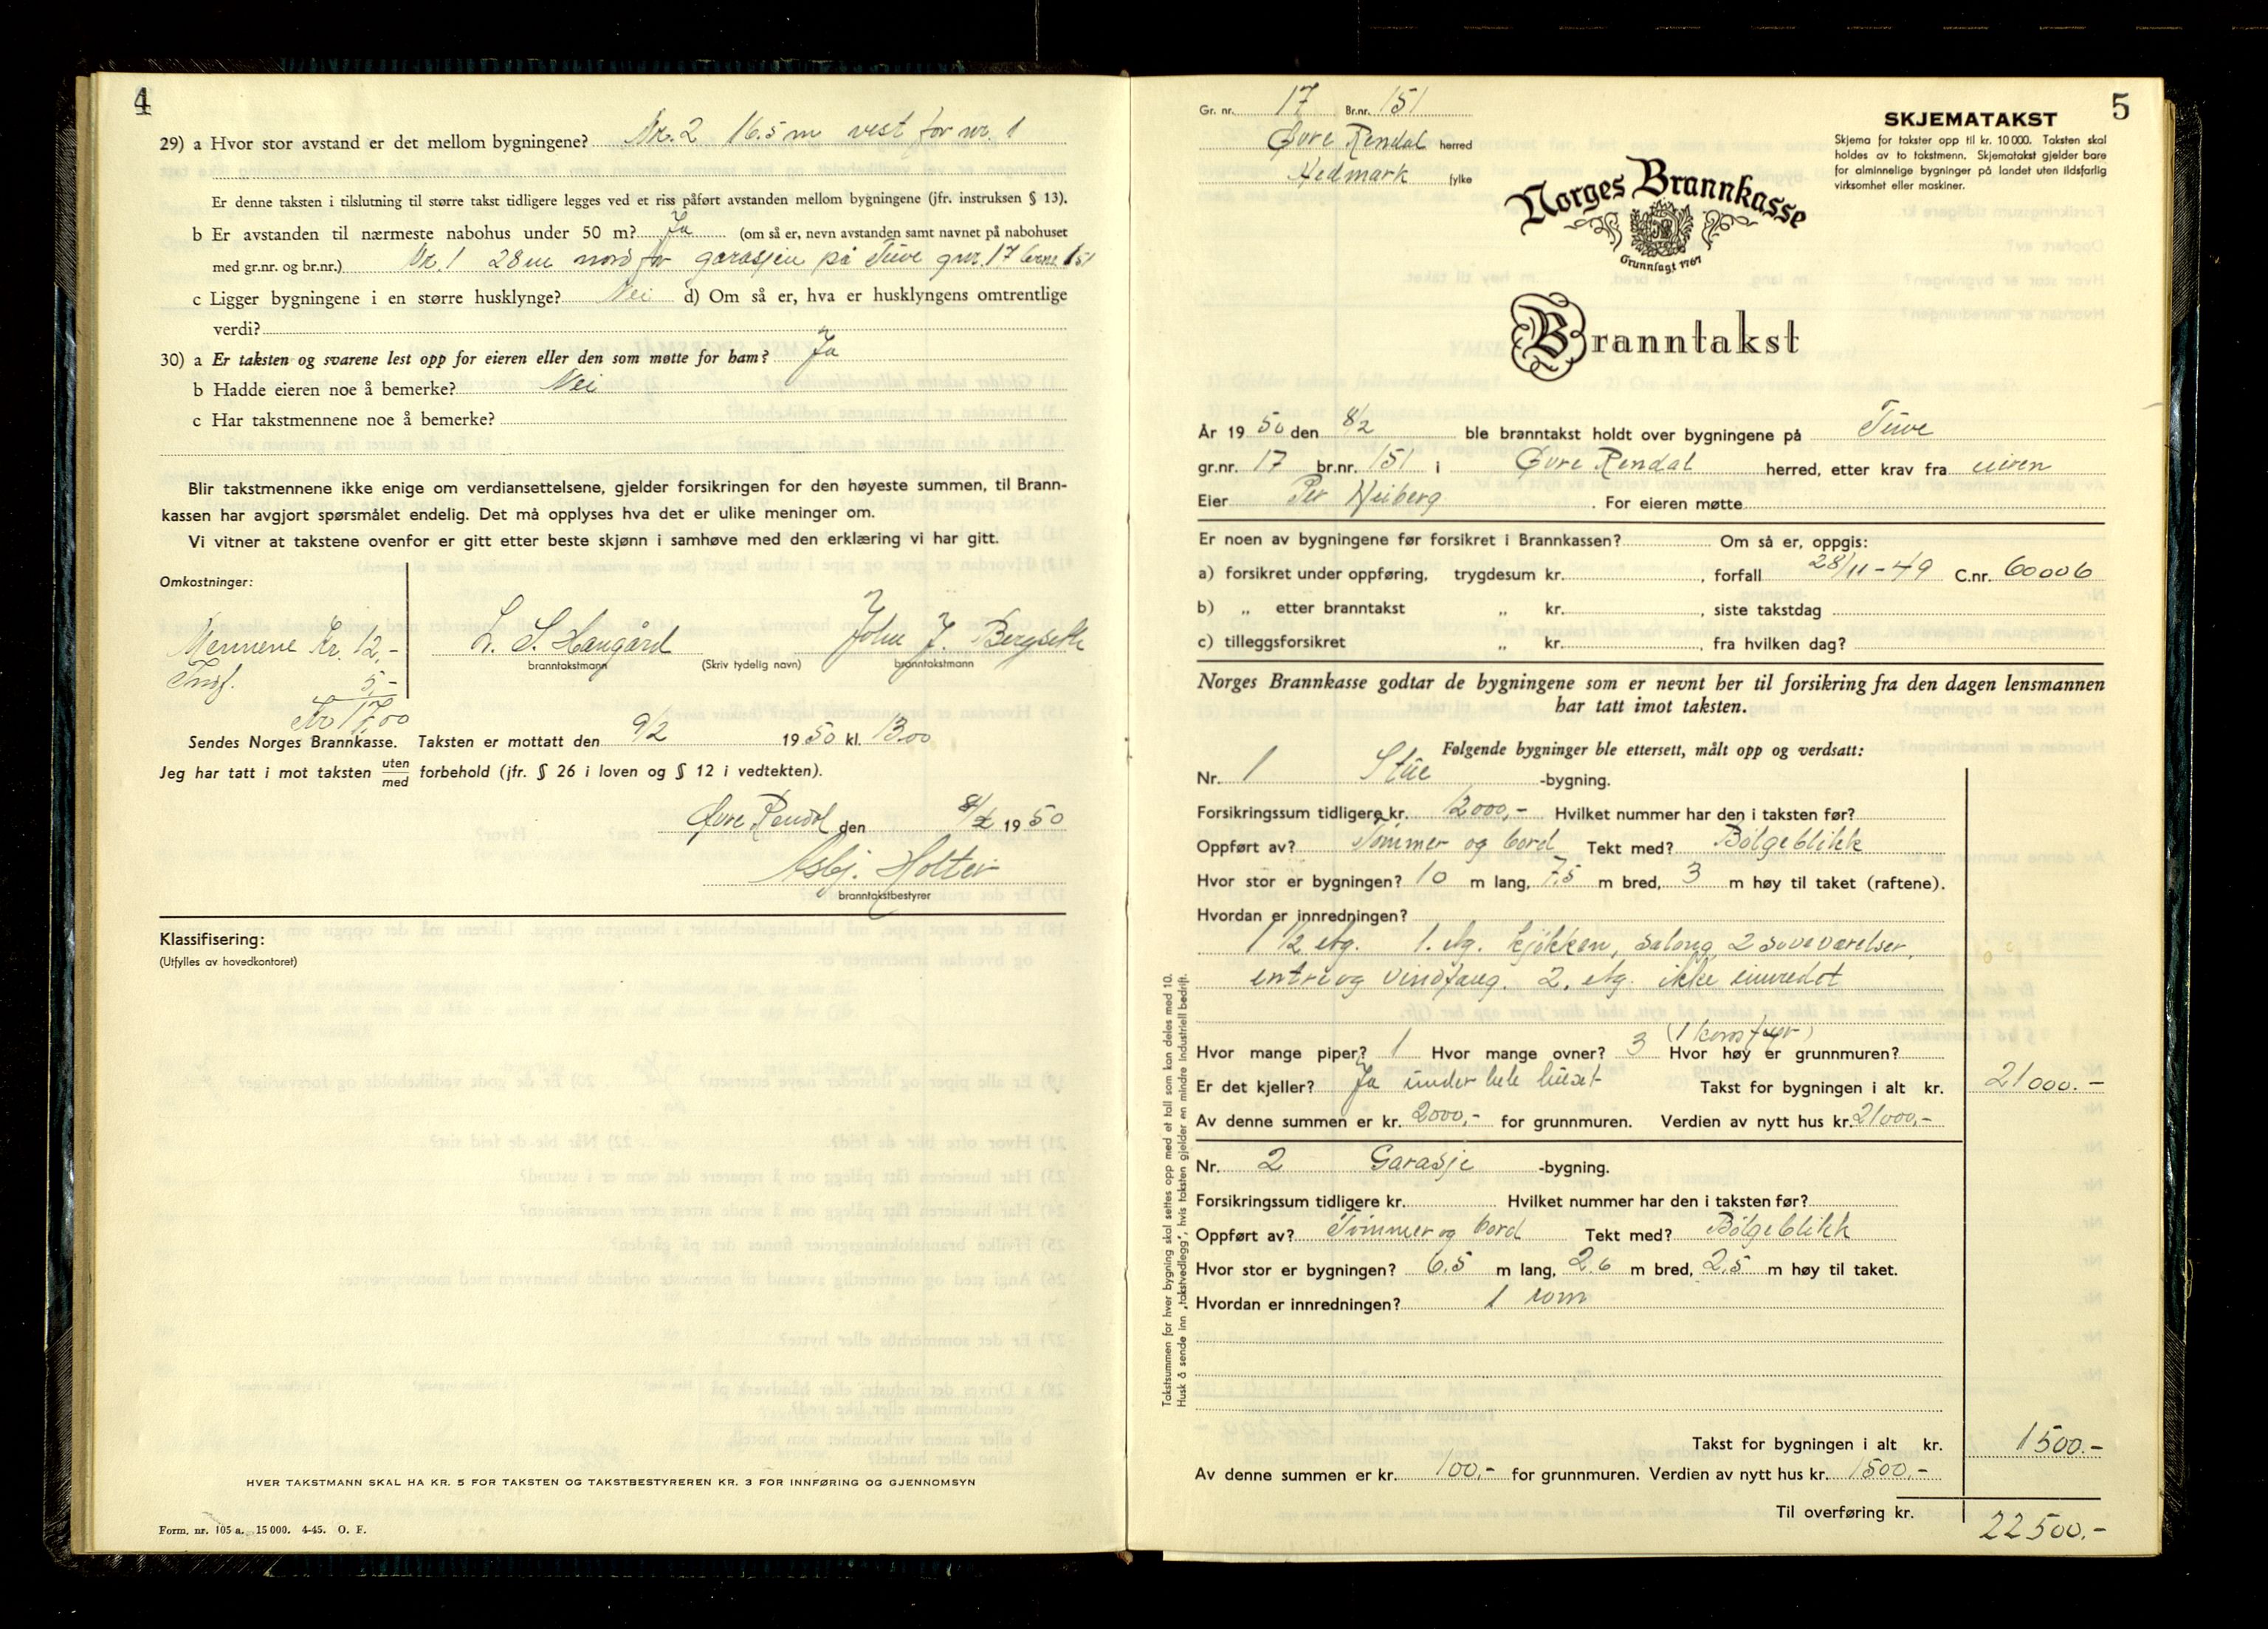 4
29) a Hvor stor avstand er det mellom bygningene? Nr. 2 16.5 m vest for nr. 1
Er denne taksten i tilslutning til større takst tidligere legges ved et riss påført avstanden mellom bygningene (jfr. instruksen § 13).
b Er avstanden til nærmeste nabohus under 50 m? Ja (om så er, nevn avstanden samt navnet på nabohuset
med gr.nr. og br.nr.) Nr. 1 28 m nord for garasjen på Tuve gnr. 17 brnr. 151
c Ligger bygningene i en større husklynge? Nei d) Om så er, hva er husklyngens omtrentlige
verdi?
30) a Er taksten og svarene lest opp for eieren eller den som møtte for ham? Ja
b Hadde eieren noe å bemerke? Nei
c Har takstmennene noe å bemerke?
Blir takstmennene ikke enige om verdiansettelsene, gjelder forsikringen for den høyeste summen, til Brann-
kassen har avgjort spørsmålet endelig. Det må opplyses hva det er ulike meninger om.
Vi vitner at takstene ovenfor er gitt etter beste skjønn i samhøve med den erklæring vi har gitt.
Omkostninger:
Mennene kr. 12,-
Innf. 5,-
Kr 17,00
L. S. Haugård John J. Bergseth
branntakstmann (Skriv tydelig navn) branntakstmann
Sendes Norges Brannkasse. Taksten er mottatt den 9/2 1950 kl. 13.00
Jeg har tatt i mot taksten uten/med forbehold (jfr. § 26 i loven og § 12 i vedtekten).
Øvre Rendal den 8/2 1950
Asbj. Holter
branntakstbestyrer
Klassifisering:
(Utfylles av hovedkontoret)
HVER TAKSTMANN SKAL HA KR. 5 FOR TAKSTEN OG TAKSTBESTYREREN KR. 3 FOR INNFØRING OG GJENNOMSYN
Form. nr. 105 a. 15 000. 4-45. O. F.
5
Gr. nr. 17 Br.nr. 151
Øvre Rendal herred
Hedmark fylke
SKJEMATAKST
Skjema for takster opp til kr. 10 000. Taksten skal
holdes av to takstmenn. Skjematakst gjelder bare
for alminnelige bygninger på landet uten ildsfarlig
virksomhet eller maskiner.
Norges Brannkasse
Grunnlagt 1767
Branntakst
År 1950 den 8/2 ble branntakst holdt over bygningene på Tuve
gr.nr. 17 br.nr. 151 i Øvre Rendal herred, etter krav fra eieren
Eier Per Heiberg. For eieren møtte
Er noen av bygningene før forsikret i Brannkassen? Om så er, oppgis:
a) forsikret under oppføring, trygdesum kr. , forfall 28/11-49 C.nr. 60006
b) „ etter branntakst „ kr. , siste takstdag
c) tilleggsforsikret „ kr. , fra hvilken dag?
Norges Brannkasse godtar de bygningene som er nevnt her til forsikring fra den dagen lensmannen
har tatt imot taksten.
Følgende bygninger ble ettersett, målt opp og verdsatt:
Nr. 1 Stue -bygning.
Forsikringssum tidligere kr. 12000,- Hvilket nummer har den i taksten før?
Oppført av? Tømmer og bord Tekt med? Bølgeblikk
Hvor stor er bygningen? 10 m lang, 7,5 m bred, 3 m høy til taket (raftene).
Hvordan er innredningen?
1 1/2 etg. 1. etg. kjøkken, salong, 2 soveværelser,
entre og vindfang. 2. etg. ikke innredet
Hvor mange piper? 1 Hvor mange ovner? 3 (1 komfyr) Hvor høy er grunnmuren?
Er det kjeller? Ja under hele huset Takst for bygningen i alt kr. 21000.-
Av denne summen er kr. 2000,- for grunnmuren. Verdien av nytt hus kr. 21000,-
Nr. 2 Garasje -bygning.
Forsikringssum tidligere kr. Hvilket nummer har den i taksten før?
Oppført av? Tømmer og bord Tekt med? Bølgeblikk
Hvor stor er bygningen? 6,5 m lang, 2,6 m bred, 2,5 m høy til taket.
Hvordan er innredningen? 1 rom
Takst for bygningen i alt kr. 1500.-
Av denne summen er kr. 100,- for grunnmuren. Verdien av nytt hus kr. 1500,-
Til overføring kr. 22500.-
Takstsummen for hver bygning skal settes opp med et tall som kan deles med 10.
Husk å sende inn „takstvedlegg", hvis taksten gjelder en mindre industriell bedrift.